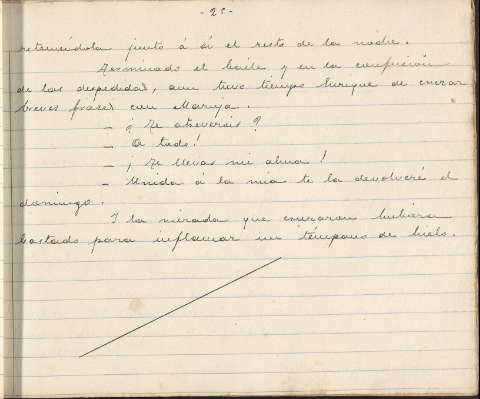 - 25 -
reteniéndola junto á sí el resto de la noche.
Terminado el baile y en la confusión
de las despedidas, aun tuvo tiempo Enrique de cruzar
breves frases con Maruja.
- ¿ Te atreverás ?
- A todo!
- ¡ Te llevas mi alma !
- Unida á la mia te la devolveré el
domingo.
Y la mirada que cruzaron hubiera
bastado para inflamar un témpano de hielo.